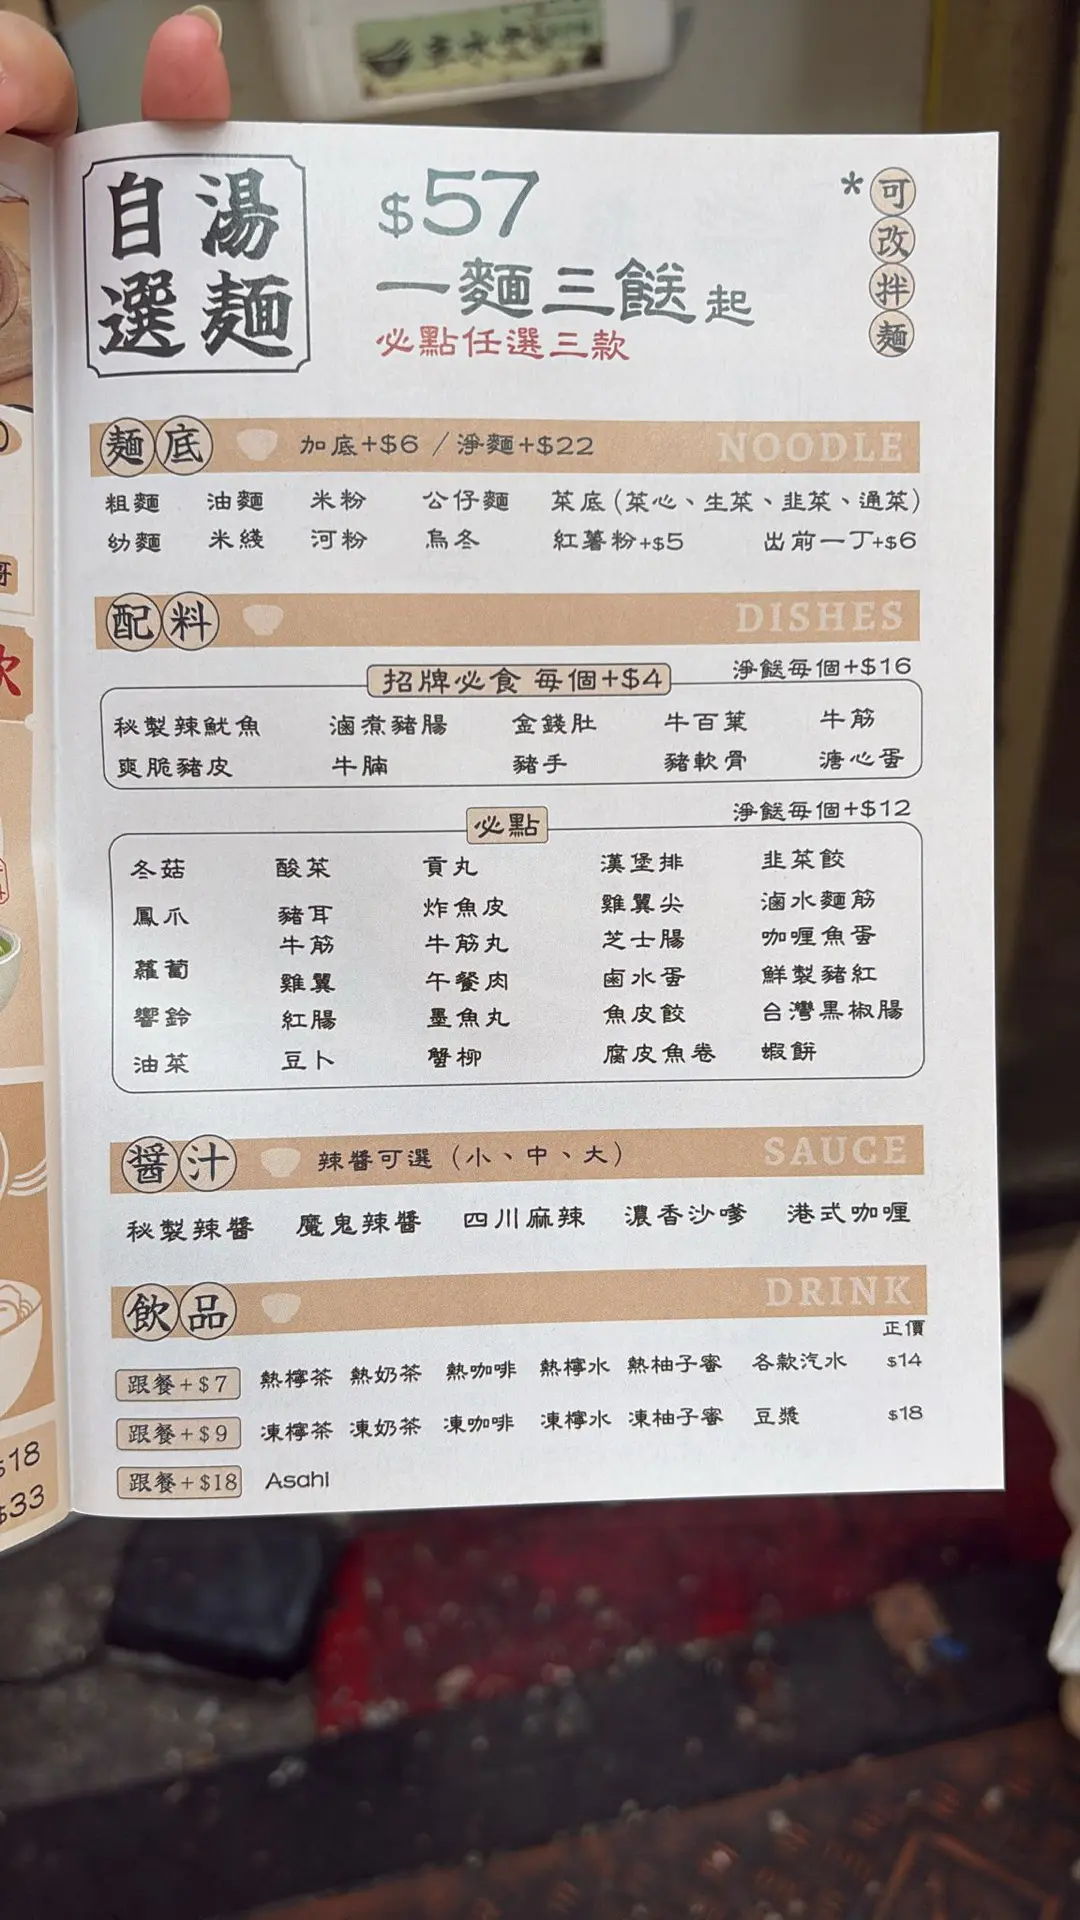 自選湯麵
$57
一麵三餸起
必點任選三款
*可改拌麵
麵底 加底+$6 / 淨麵+$22 NOODLE
粗麵 油麵 米粉 公仔麵 菜底(菜心、生菜、韭菜、通菜)
幼麵 米綫 河粉 烏冬 紅薯粉+$5 出前一丁+$6
配料 DISHES
招牌必食 每個+$4 淨餸每個+$16
秘製辣魷魚 滷煮豬腸 金錢肚 牛百葉 牛筋
爽脆豬皮 牛腩 豬手 豬軟骨 溏心蛋
必點 淨餸每個+$12
冬菇 酸菜 貢丸 漢堡排 韭菜餃
鳳爪 豬耳 炸魚皮 雞翼尖 滷水麵筋
牛筋 牛筋丸 芝士腸 咖喱魚蛋
蘿蔔 雞翼 午餐肉 鹵水蛋 鮮製豬紅
響鈴 紅腸 墨魚丸 魚皮餃 台灣黑椒腸
油菜 豆卜 蟹柳 腐皮魚卷 蝦餅
醬汁 辣醬可選(小、中、大) SAUCE
秘製辣醬 魔鬼辣醬 四川麻辣 濃香沙嗲 港式咖喱
飲品 DRINK
正價
跟餐+$7 熱檸茶 熱奶茶 熱咖啡 熱檸水 熱柚子蜜 各款汽水 $14
跟餐+$9 凍檸茶 凍奶茶 凍咖啡 凍檸水 凍柚子蜜 豆漿 $18
跟餐+$18 Asahi
$18
$33